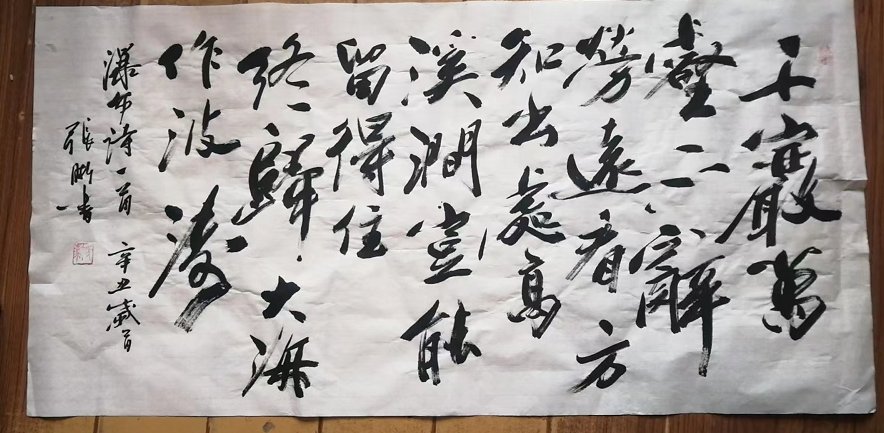 千巖萬
壑不辭
勞遠看方
知出處高
溪澗豈能
留得住
終歸大海
作波濤
瀑布詩一首 辛丑歲首
張鵬書